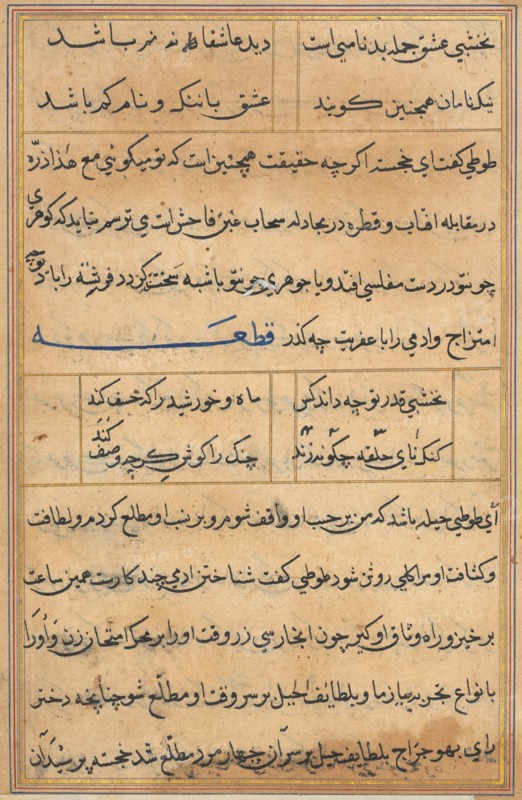 نخشبی عشق جمله بدنامی است دید عاشقان نه نر باشد
نیک نامان همچنین کویند عشق باننک و نام کم باشد
طوطی کفت ای خجسته اکرچه حقیقت همچنین است که تو میکوئی مع هذا ذره
در مقابله افتاب و قطره در مجادله سحاب غبن فاحش است می ترسم نباید که کوهری
چون تو در دست مفلسی افتد و یا جوهری چون تو با شبه سخته کردد فرشته را با دیو چه
امتزاج وادمی را با عفریت چه کذر قطعه
نخشبی قدر تو چه داند کس ماه و خورشید را که خسف کند
کنک نای حلقه چکونه زند چنک را کوش کر چه وصف کند
ای طوطی حیله باشد که من بر حسب او واقف شوم و بر نسب او مطلع کردم و لطافت
و کثافت او مرا کلی روشن شود طوطی کفت شناختن ادمی چند کارست همین ساعت
برخیز و راه وثاق او کیر چون انجا رسی زر وقت اورا بر محک امتحان زن و اورا
بانواع تجربه بیازما و بلطایف الحیل بر سر وقت او مطلع شو چنانچه دختر
رای بهوجراج بلطایف حیل بر سر آن چهار مرد مطلع شد خجسته پرسید آن